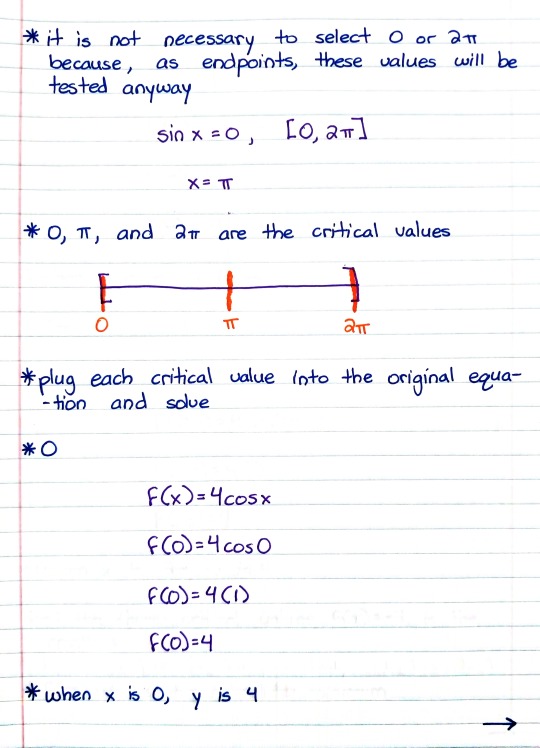 * it is not necessary to select 0 or 2π
because, as endpoints, these values will be
tested anyway
sin x = 0, [0, 2π]
x = π
* 0, π, and 2π are the critical values
0 π 2π
* plug each critical value into the original equa-
-tion and solve
* 0
f(x) = 4cosx
f(0) = 4cos0
f(0) = 4(1)
f(0) = 4
* when x is 0, y is 4
→